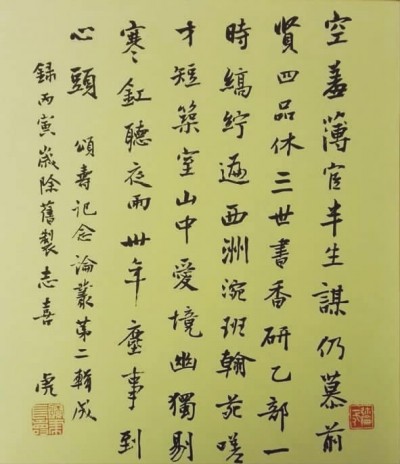 空羞薄宦半生謀仍慕前
賢四品休三世書香研乙部一
時縞紵遍西洲班翰苑嗟
才短築室山中愛境幽獨剔
寒釭聽夜雨卅年塵事到
心頭 頌壽記念論叢第二輯成
録丙寅歲除舊製志喜